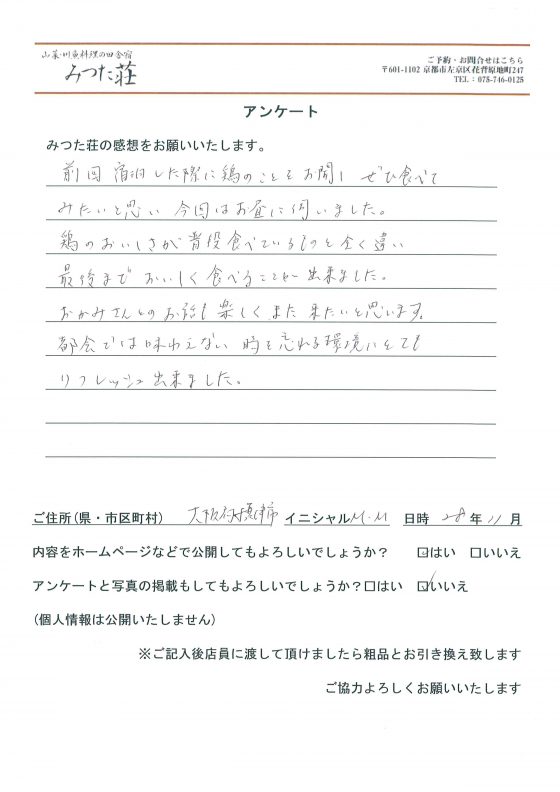 山菜・川魚料理の田舎宿
みつた荘
ご予約・お問合せはこちら
〒601-1102 京都市左京区花背原地町247
TEL：075-746-0125
アンケート
みつた荘の感想をお願いいたします。
前回 宿泊した際に鶏のことをお聞し ぜひ食べて
みたいと思い 今回はお昼に伺いました。
鶏のおいしさが普段食べているものと全く違い
最後まで おいしく食べることが出来ました。
おかみさんとのお話も楽しく また 来たいと思います。
都会では味わえない 時を忘れる環境にとても
リフレッシュ出来ました。
ご住所(県・市区町村) 大阪府摂津市 イニシャル M.M 日時 28年 11月
内容をホームページなどで公開してもよろしいでしょうか？ ☑はい □いいえ
アンケートと写真の掲載もしてもよろしいでしょうか？□はい ☑いいえ
(個人情報は公開いたしません)
※ご記入後店員に渡して頂けましたら粗品とお引き換え致します
ご協力よろしくお願いいたします